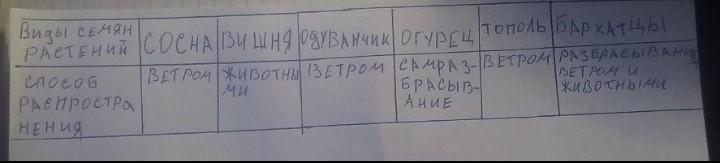 Виды семян растений | сосна | вишня | одуванчик | огурец | тополь | бархатцы
способ распростра нения | ветром | животны ми | ветром | самраз- брасыв- ание | ветром | разбрасывание ветром и животными